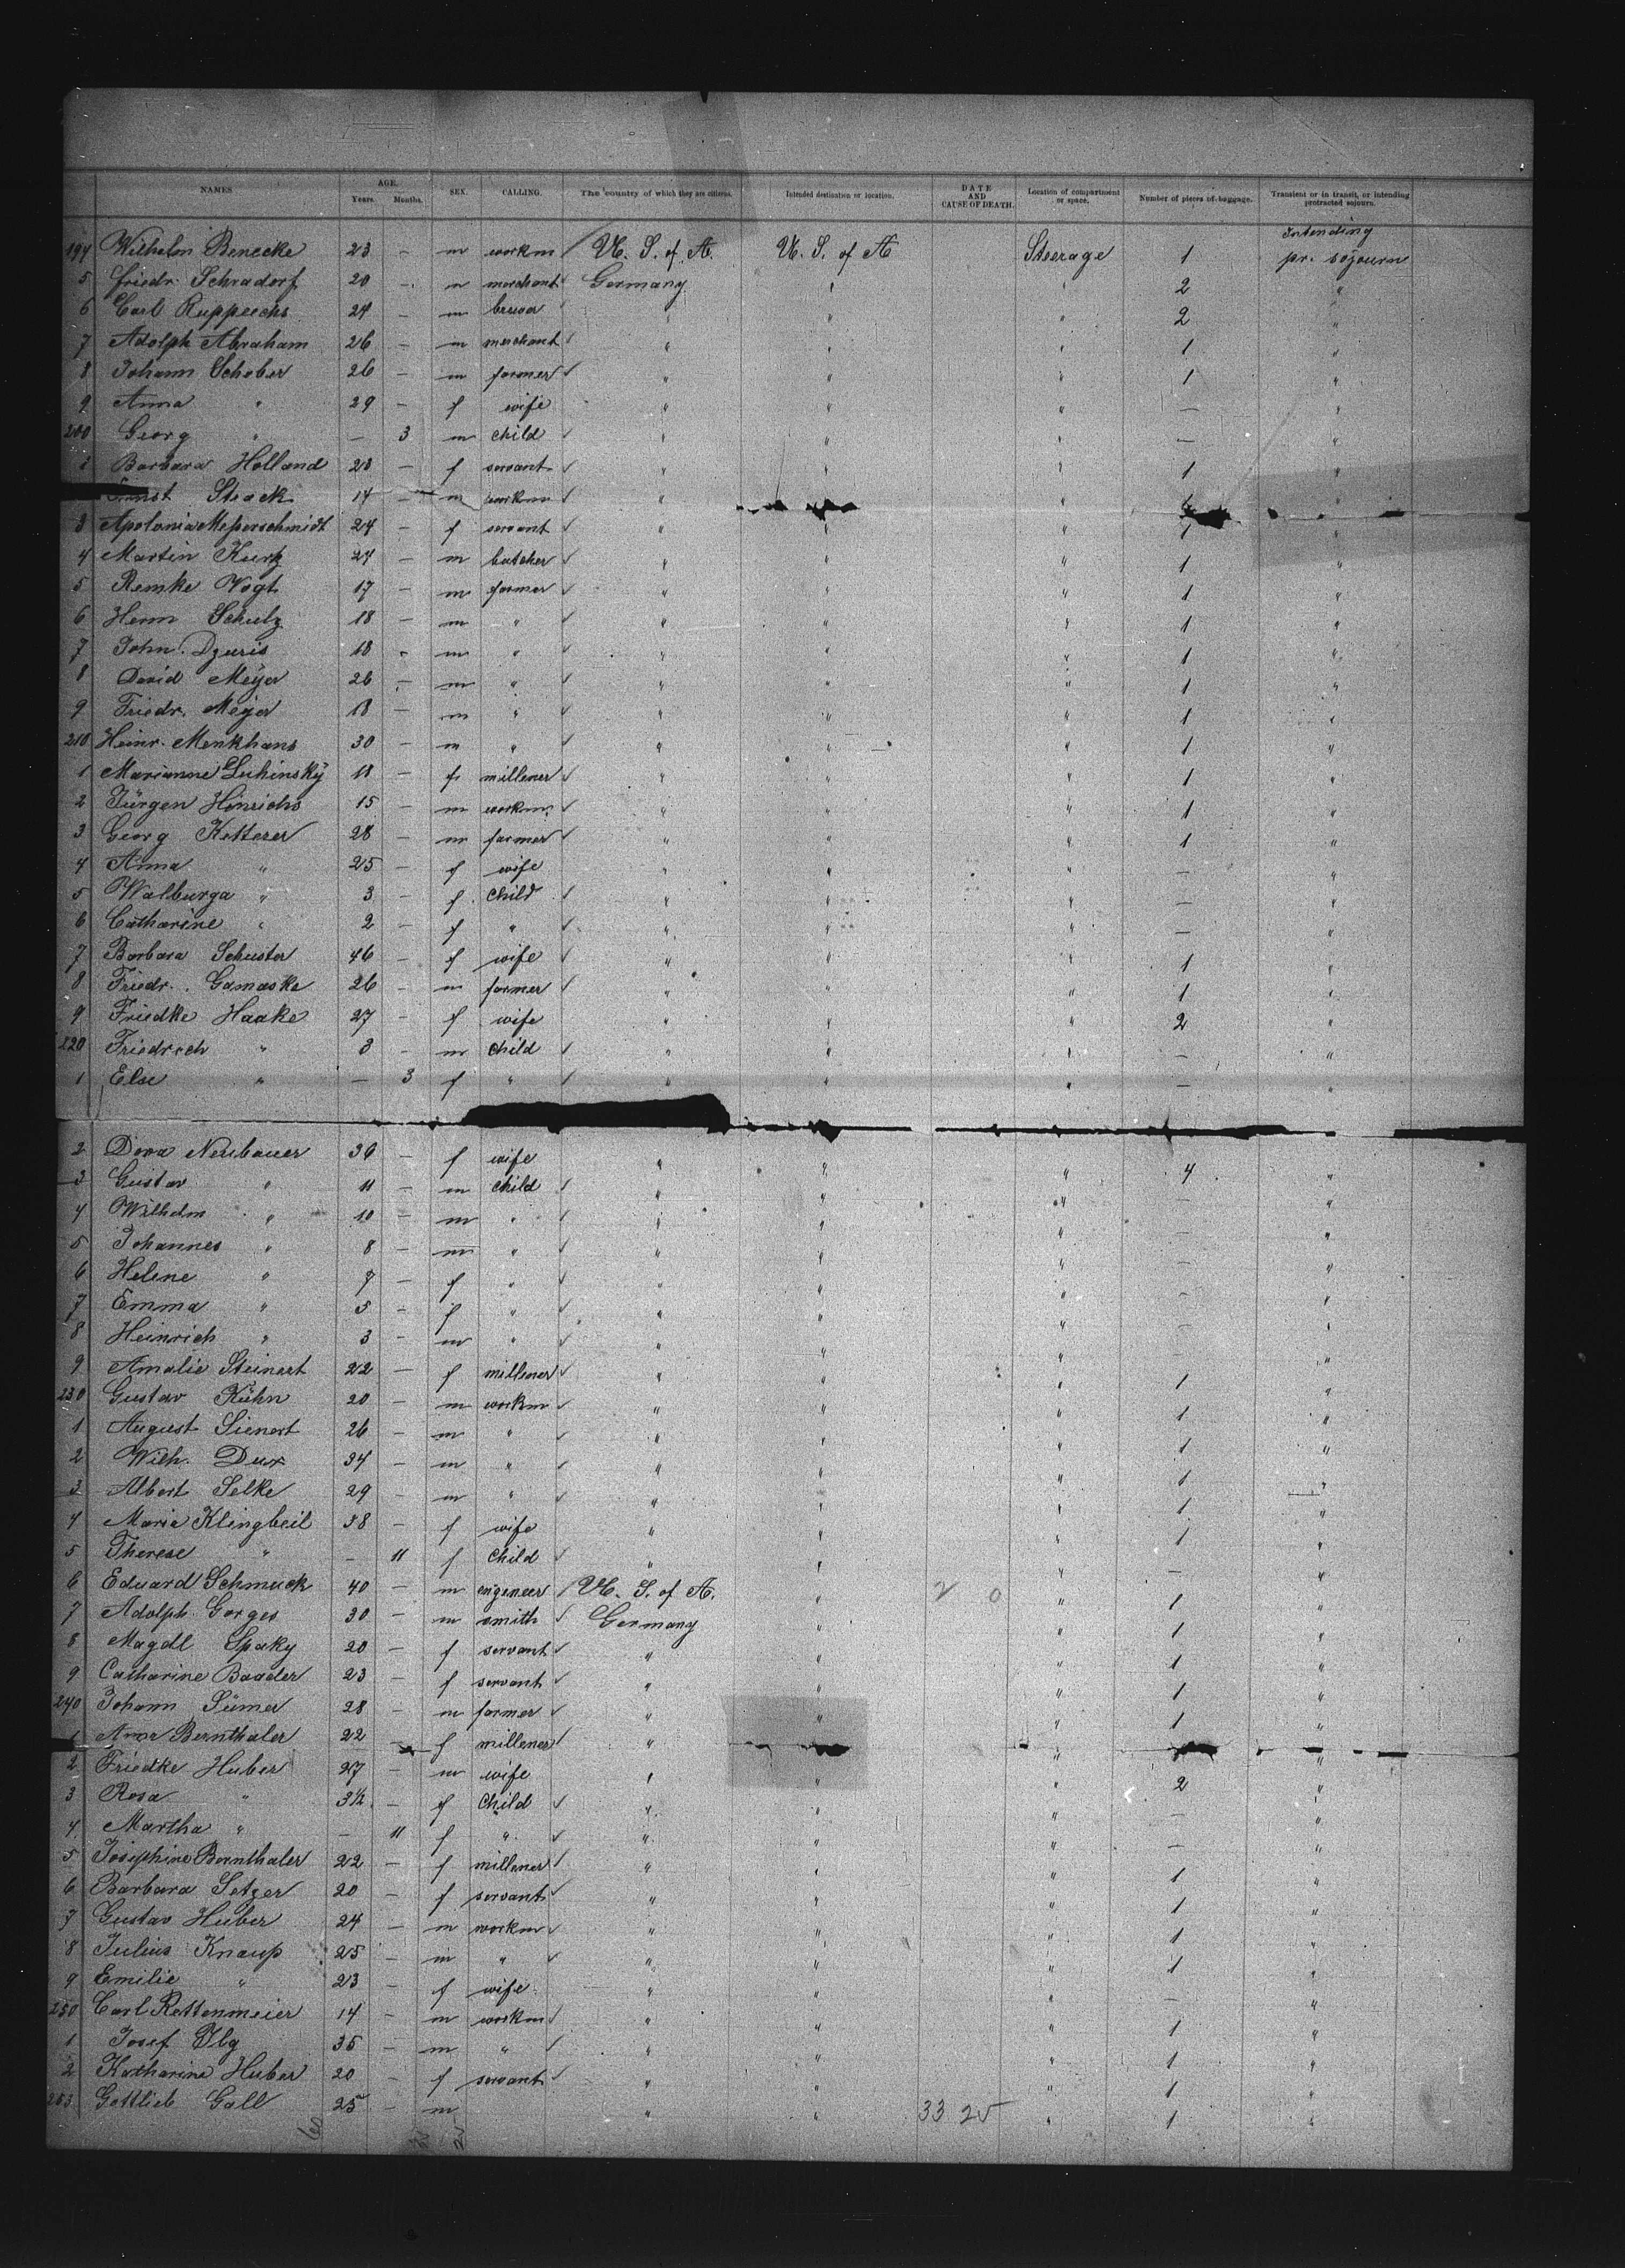 NAMES AGE. Years. Months. SEX. CALLING. The country of which they are citizens. Intended destination or location. DATE AND CAUSE OF DEATH. Location of compartment or space. Number of pieces of baggage. Transient or in transit, or intending protracted sojourn.
194 Wilhelm Benecke 23 – m workm U. S. of A. U. S. of A Steerage 1 Intending pr. sojourn
5 Friedr. Schradorf 20 – m merchant Germany " " 2 "
6 Carl 24 – m brewer " " " 2 "
7 Adolph Abraham 26 – m merchant " " " 1 "
8 Johann Schober 26 – m farmer " " " 1 "
9 Anna " 29 – f wife " " " – "
200 Georg " – 3 m child " " " – "
1 Barbara Holland 23 – f servant " " " 1 "
Ernst Stack 14 – m workm " " " 1 "
3 Apolonia Messerschmidt 24 – f servant " " " 1 "
4 Martin Kurtz 24 – m butcher " " " 1 "
5 Remke Vogt 17 – m farmer " " " 1 "
6 Herm Schulz 18 – m " " " " 1 "
7 John. Dzuris 18 – m " " " " 1 "
8 David Meyer 26 – m " " " " 1 "
9 Friedr. Meyer 18 – m " " " " 1 "
210 Heinr. Menkhans 30 – m " " " " 1 "
1 Marianne Luhinsky 18 – f millener " " " 1 "
2 Jürgen Hinrichs 15 – m workm. " " " 1 "
3 Georg Ketterer 28 – m farmer " " " 1 "
4 Anna " 25 – f wife " " " – "
5 Walburga " 3 – f child " " " – "
6 Catharine " 2 – f " " " " – "
7 Barbara Schuster 46 – f wife " " " 1 "
8 Friedr. Gamaske 26 – m farmer " " " 1 "
9 Friedke Haake 27 – f wife " " " 2 "
220 Friedrich " 3 – m child " " " – "
1 Else " – 3 f " " " " – "
2 Dora Neubauer 36 – f wife " " " 4 "
3 Gustav " 11 – m child " " " – "
4 Wilhelm " 10 – m " " " " – "
5 Johannes " 8 – m " " " " – "
6 Helene " 7 – f " " " " – "
7 Emma " 5 – f " " " " – "
8 Heinrich " 3 – m " " " " – "
9 Amalie Steinert 22 – f millener " " " 1 "
230 Gustav Kühn 20 – m workm " " " 1 "
1 August Sienert 26 – m " " " " 1 "
2 Wilh. Dux 34 – m " " " " 1 "
3 Albert Selke 29 – m " " " " 1 "
4 Maria Klingbeil 38 – f wife " " " 1 "
5 Therese " – 11 f child " " " – "
6 Eduard Schmuck 40 – m engeneer U. S. of A. " 2 0 " 1 "
7 Adolph Gorges 30 – m smith Germany " " 1 "
8 Magdl Spaky 20 – f servant " " " 1 "
9 Catharine Baader 23 – f servant " " " 1 "
240 Johann Sümer 28 – m farmer " " " 1 "
1 Anna Bernthaler 22 – f millener " " " "
2 Friedke Huber 27 – m wife " " " 2 "
3 Rosa " 3½ – f child " " " – "
4 Martha " – 11 f " " " " – "
5 Josephine Bernthaler 22 – f millener " " " 1 "
6 Barbara Setzer 20 – f servant " " " 1 "
7 Gustav Huber 24 – m workm " " " 1 "
8 Julius Knaup 25 – m " " " " 1 "
9 Emilie " 23 – f wife " " " – "
250 Carl Rettenmeier 14 – m workm " " " 1 "
1 Josef Ilg 35 – m " " " " 1 "
2 Katharine Huber 20 – f servant " " " 1 "
253 Gottlieb Gall 25 – m " " 33 25 " 1 "